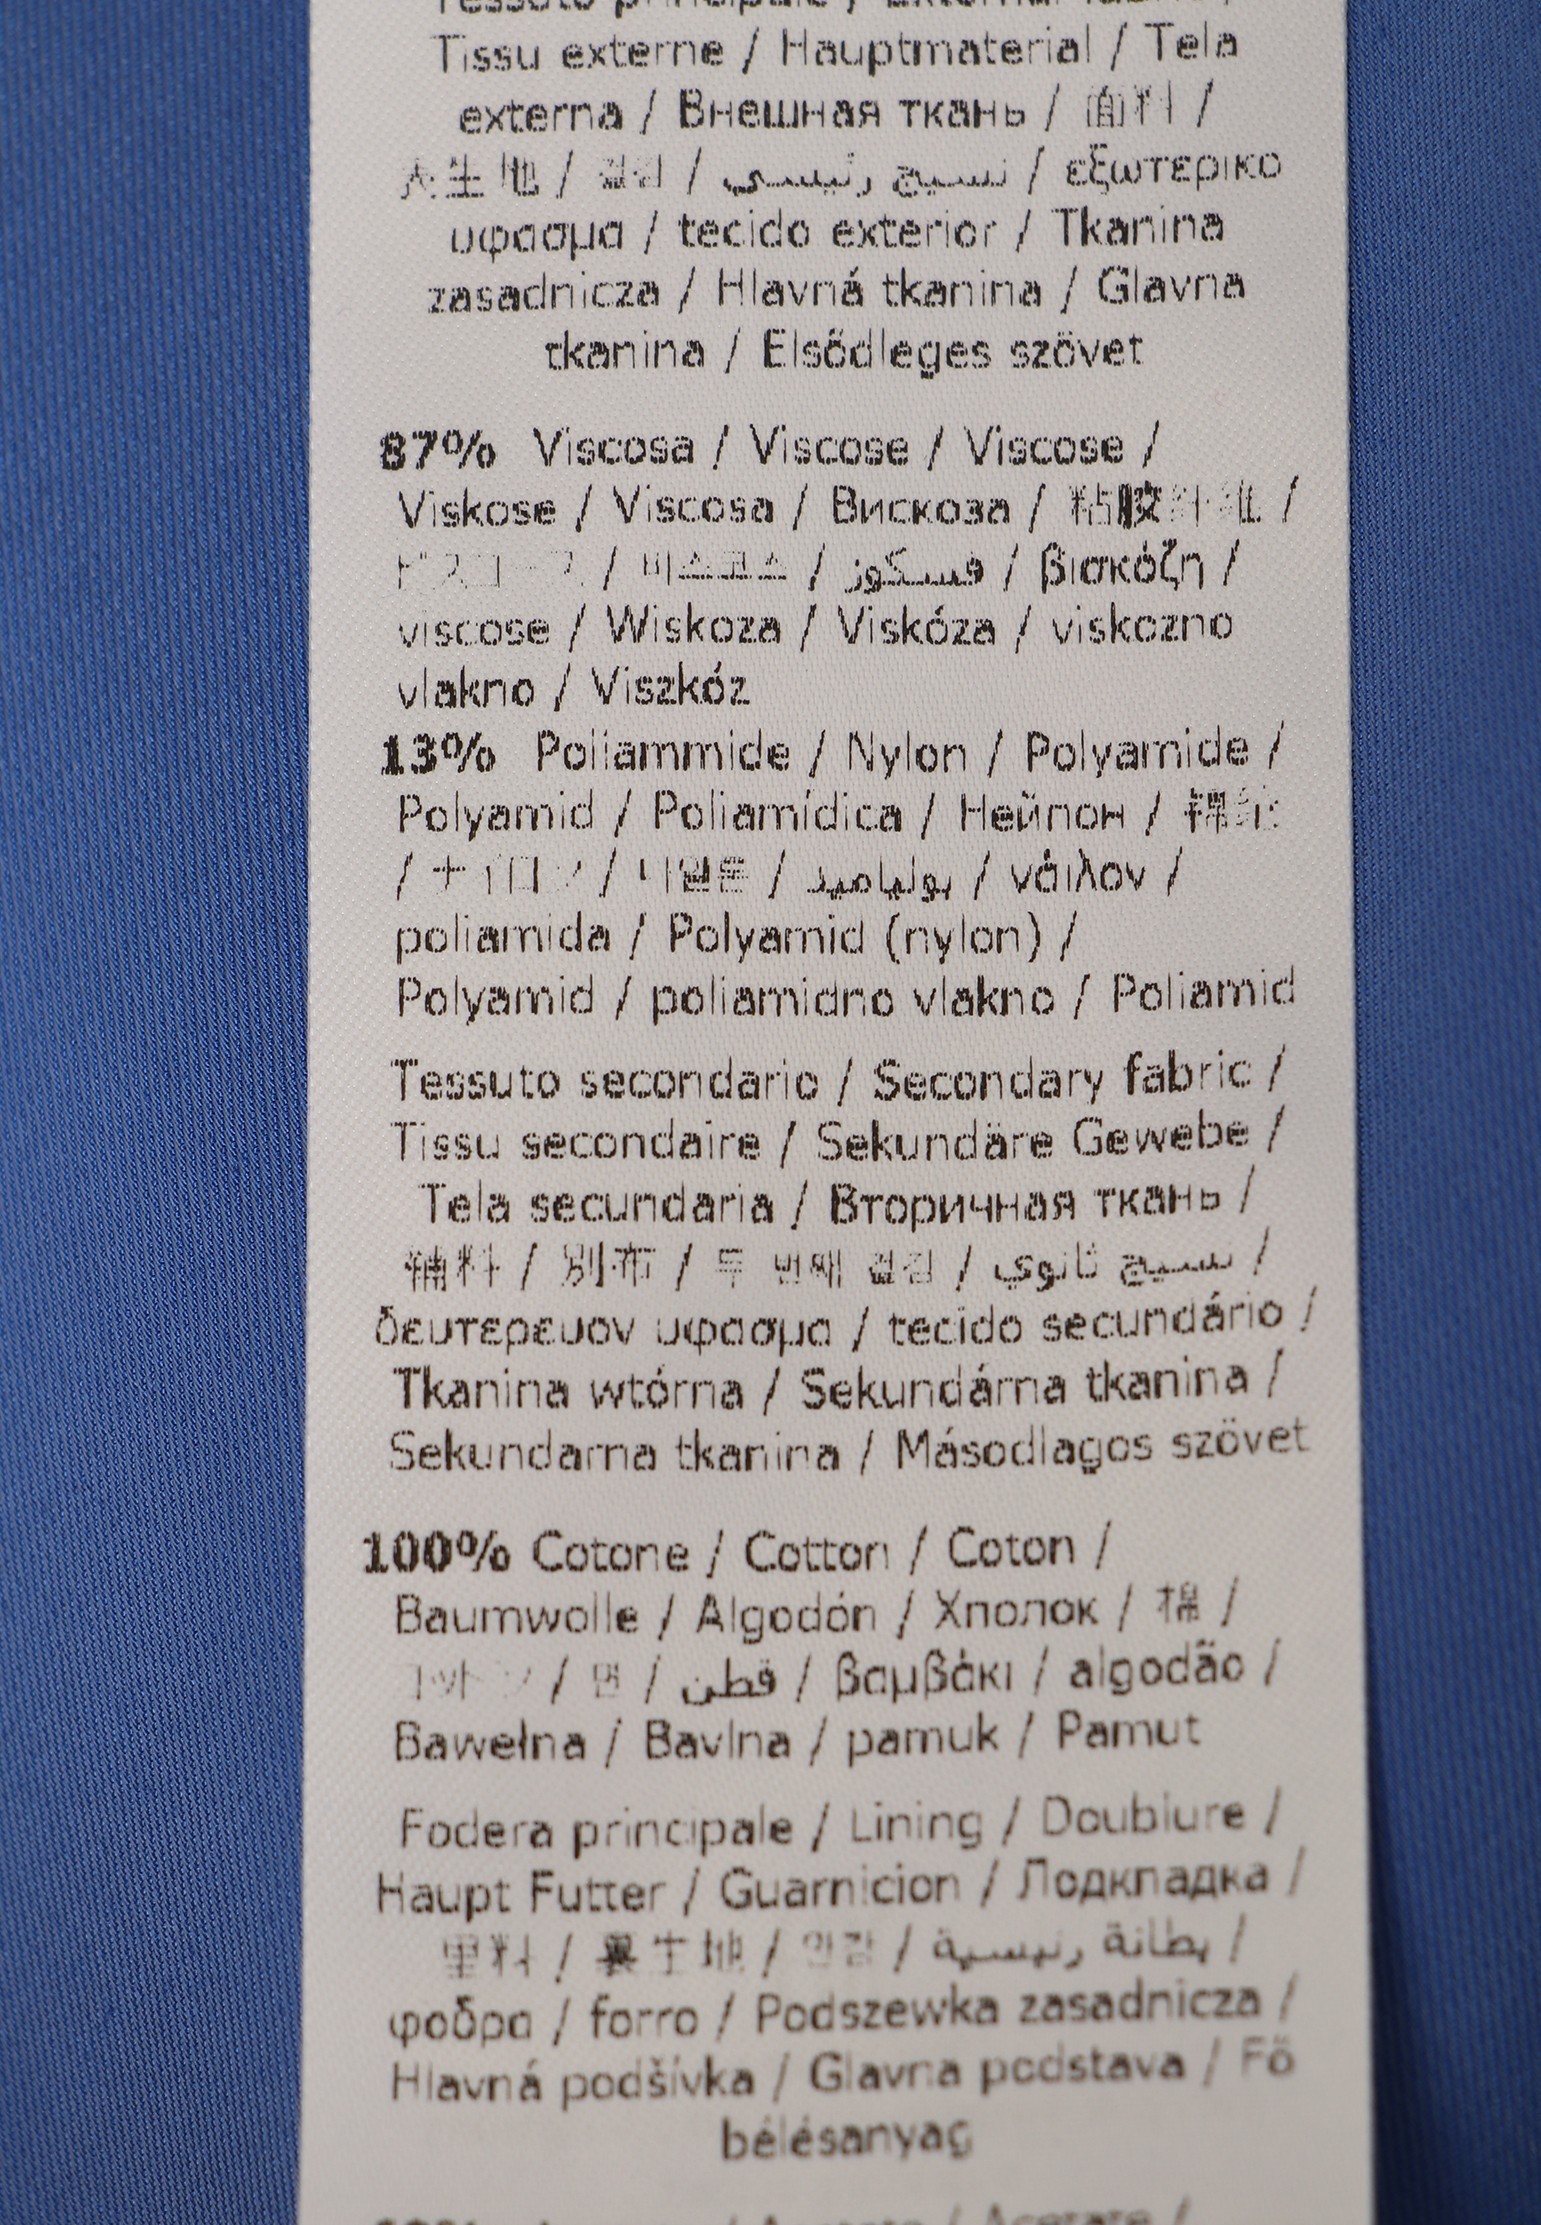 Tessuto principale / External fabric /
Tissu externe / Hauptmaterial / Tela
externa / Внешная ткань / 面料 /
表生地 / 겉감 / نسيج رئيسي / εξωτερικο
υφασμα / tecido exterior / Tkanina
zasadnicza / Hlavná tkanina / Glavna
tkanina / Elsődleges szövet
87% Viscosa / Viscose / Viscose /
Viskose / Viscosa / Вискоза / 粘胶纤维 /
ビスコース / 비스코스 / فسكوز / βισκόζη /
viscose / Wiskoza / Viskóza / viskozno
vlakno / Viszkóz
13% Poliammide / Nylon / Polyamide /
Polyamid / Poliamídica / Нейлон /
/ ナイロン / 나일론 / بولياميد / νάιλον /
poliamida / Polyamid (nylon) /
Polyamid / poliamidno vlakno / Poliamid
Tessuto secondario / Secondary fabric /
Tissu secondaire / Sekundäre Gewebe /
Tela secundaria / Вторичная ткань /
辅料 / 別布 / 두 번째 겉감 / نسيج ثانوي /
δευτερευον υφασμα / tecido secundário /
Tkanina wtórna / Sekundárna tkanina /
Sekundarna tkanina / Másodlagos szövet
100% Cotone / Cotton / Coton /
Baumwolle / Algodón / Хлопок / 棉 /
コットン / 면 / قطن / βαμβάκι / algodão /
Bawełna / Bavlna / pamuk / Pamut
Fodera principale / Lining / Doublure /
Haupt Futter / Guarnicion / Подкладка /
里料 / 裏生地 / 안감 / بطانة رئيسية /
φοδρα / forro / Podszewka zasadnicza /
Hlavná podšívka / Glavna podstava / Fő
bélésanyag